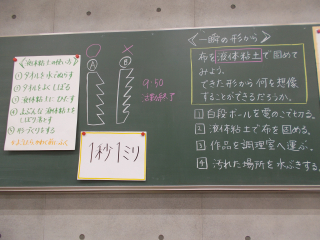 液体粘土の使い方
① タオルを水でぬらす
② タオルをよくしぼる
③ 液体粘土にひたす
④ よぶんな液体粘土を
しぼり落とす
⑤ 形づくりをする
○
×
A
B
9:50
1秒1ミリ
一瞬の形から
布を液体粘土で固めて
みよう。
できた形から何を想像
することができるだろうか。
1 白段ボールを電のこで切る。
2 液体粘土で布を固める。
3 作品を調理室へ運ぶ。
4 汚れた場所を水ぶきする。